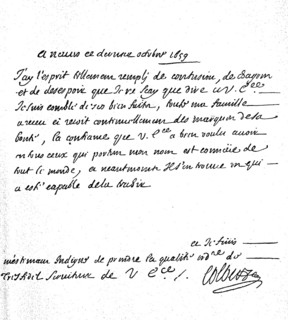 a neuers ce dernier octobre 1659
J'ay l'esprit tellement remply de confusion, de
et de desespoir que Je ne scay que dire a V. E.ce
Je suis comblé de ses bien faits, toute ma famille
a receu et reçoit continuellement des marques de sa
bonté, la confiance que V. E.ce a bien voulu auoir
en tous ceux qui portent mon nom est connüe de
tout le monde, et neantmoins Il s'en trouue un qui
a esté capable de la trahir
et Je suis
mesme Indigne de prendre la qualité de
tres Seruiteur de V. E.ce /.